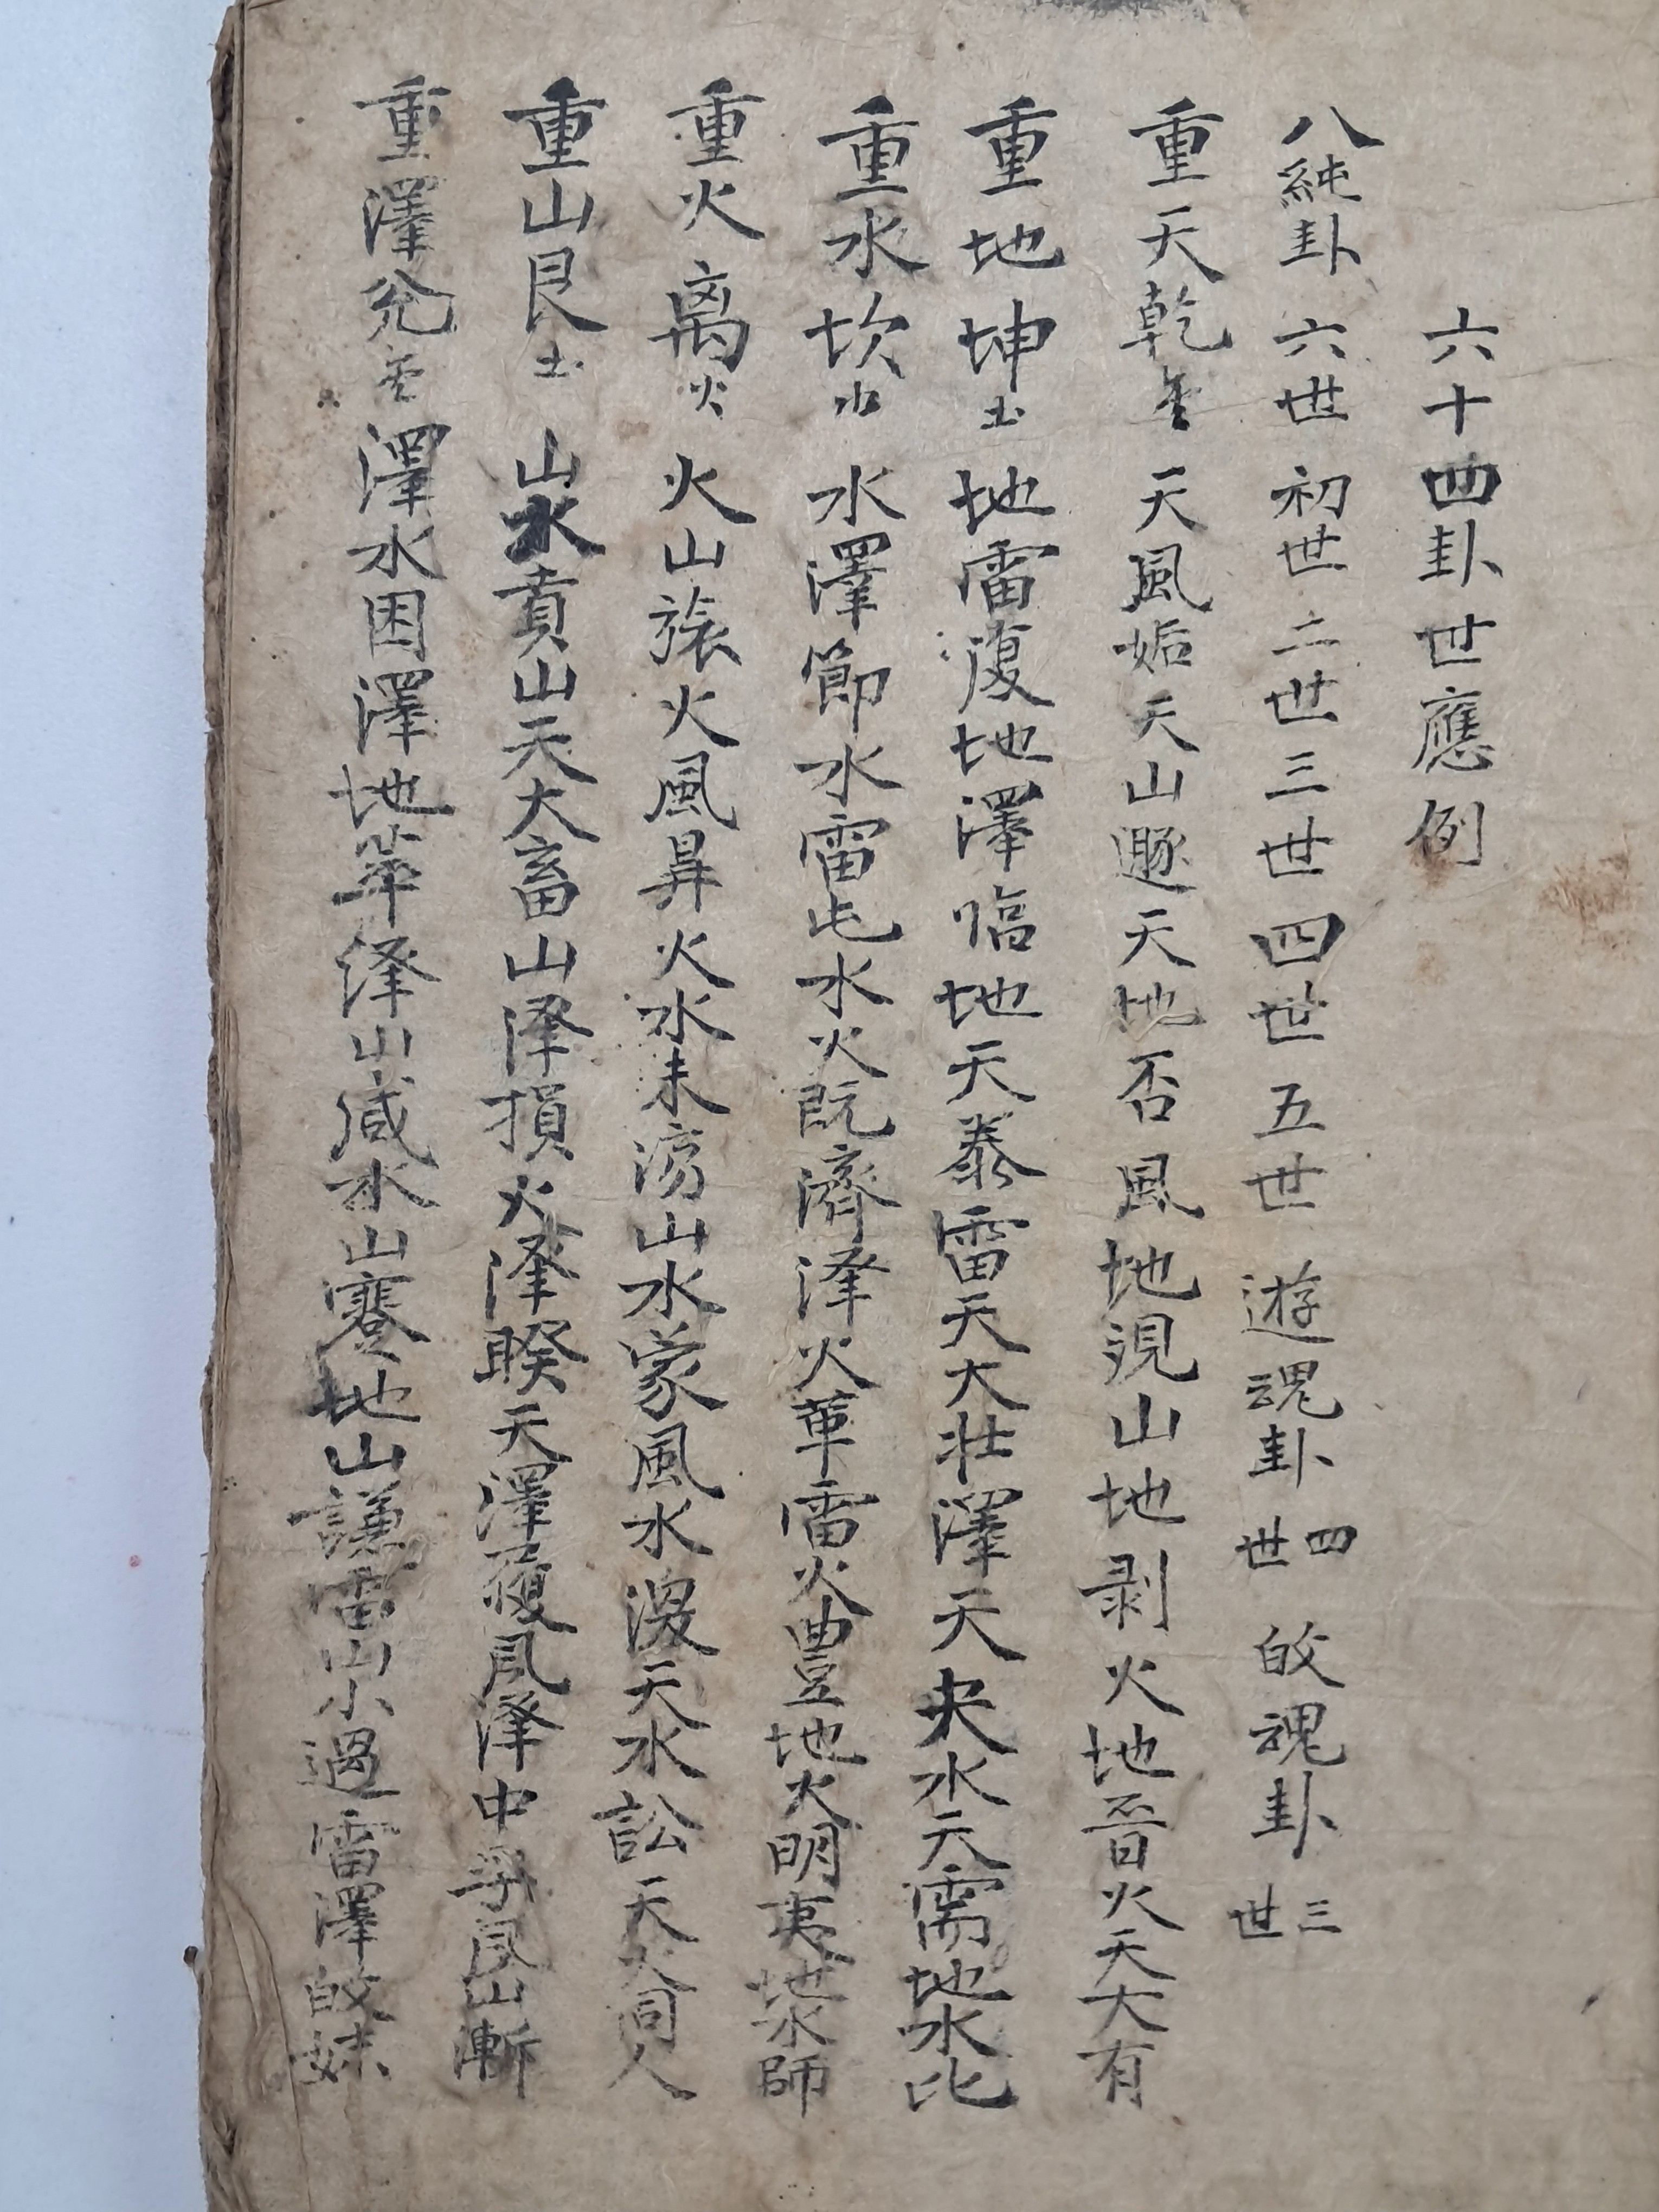 六十四卦世應例
八純卦 六世 初世 二世 三世 四世 五世 遊魂卦 四世 皈魂卦 三世
重天乾金 天風姤天山遯天地否風地觀山地剥火地晋火天大有
重地坤土 地雷復地澤臨地天泰雷天大壮澤天夬水天需地水比
重水坎水 水澤節水雷屯水火既濟泽火革雷火豊地火明夷地水師
重火离火 火山旅火風鼎火水未济山水蒙風水渙天水訟天火同人
重山艮土 山火賁山天大畜山泽損火泽睽天澤履风泽中孚风山漸
重澤兊金 澤水困澤地萃泽山咸水山蹇地山謙雷山小過雷澤皈妹